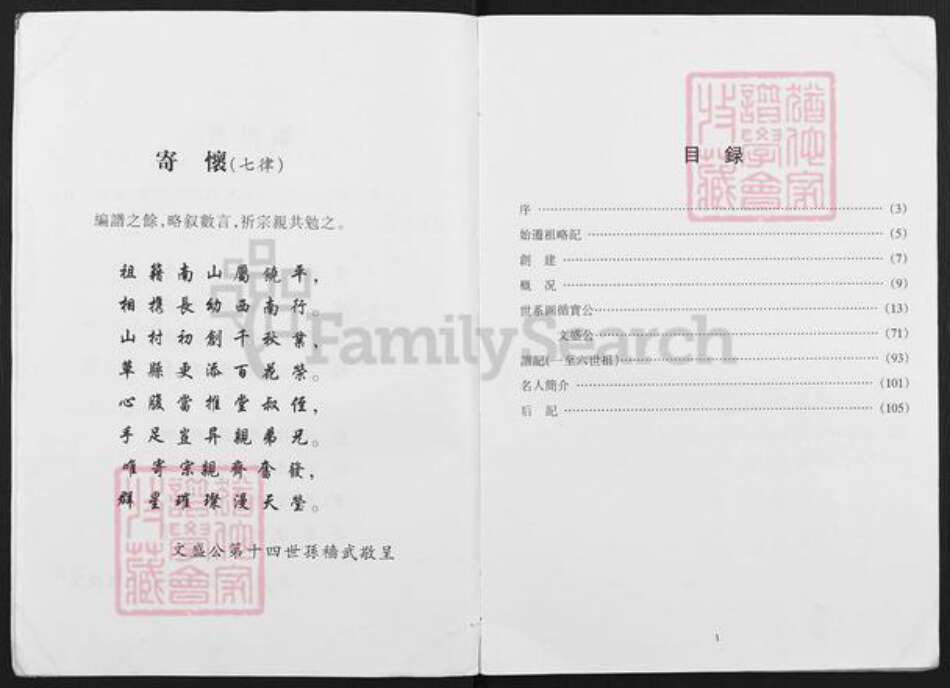 寄 懷(七律)
編譜之餘,略叙數言,祈宗親共勉之。
祖籍南山屬饒平,
相携長幼西南行。
山村初創千秋業,
草縣更添百花榮。
心腹當推堂叔侄,
手足豈异親弟兄。
唯寄宗親齊奮發,
群星璀璨漫天瑩。
文盛公第十四世孫禧武敬呈
FamilySearch
目 録
序 (3)
始遷祖略記 (5)
創 建 (7)
概 况 (9)
世系圖循實公 (13)
文盛公 (71)
譜記(一至六世祖) (93)
名人簡介 (101)
后 記 (105)
1